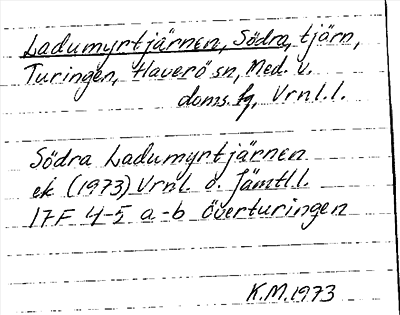 Ladumyrtjärnen, Södra, tjärn,
Turingen, Haverö sn, Med. v.
doms. tg, Vrnl.l.
Södra Ladumyrtjärnen
ek (1973) Vrnl. o. Jämtl.l.
17F 4-5 a-b Överturingen
K.M.1973